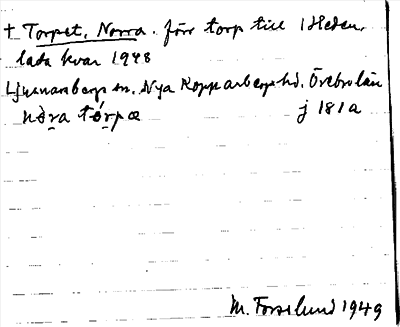 † Torpet, Norra. förr torp till Heden,
lada kvar 1948
Ljusnarsbergs sn. Nya Kopparbergs hd. Örebro län
nọ̀ra tórpæ j 181a
M. Forslund 1949